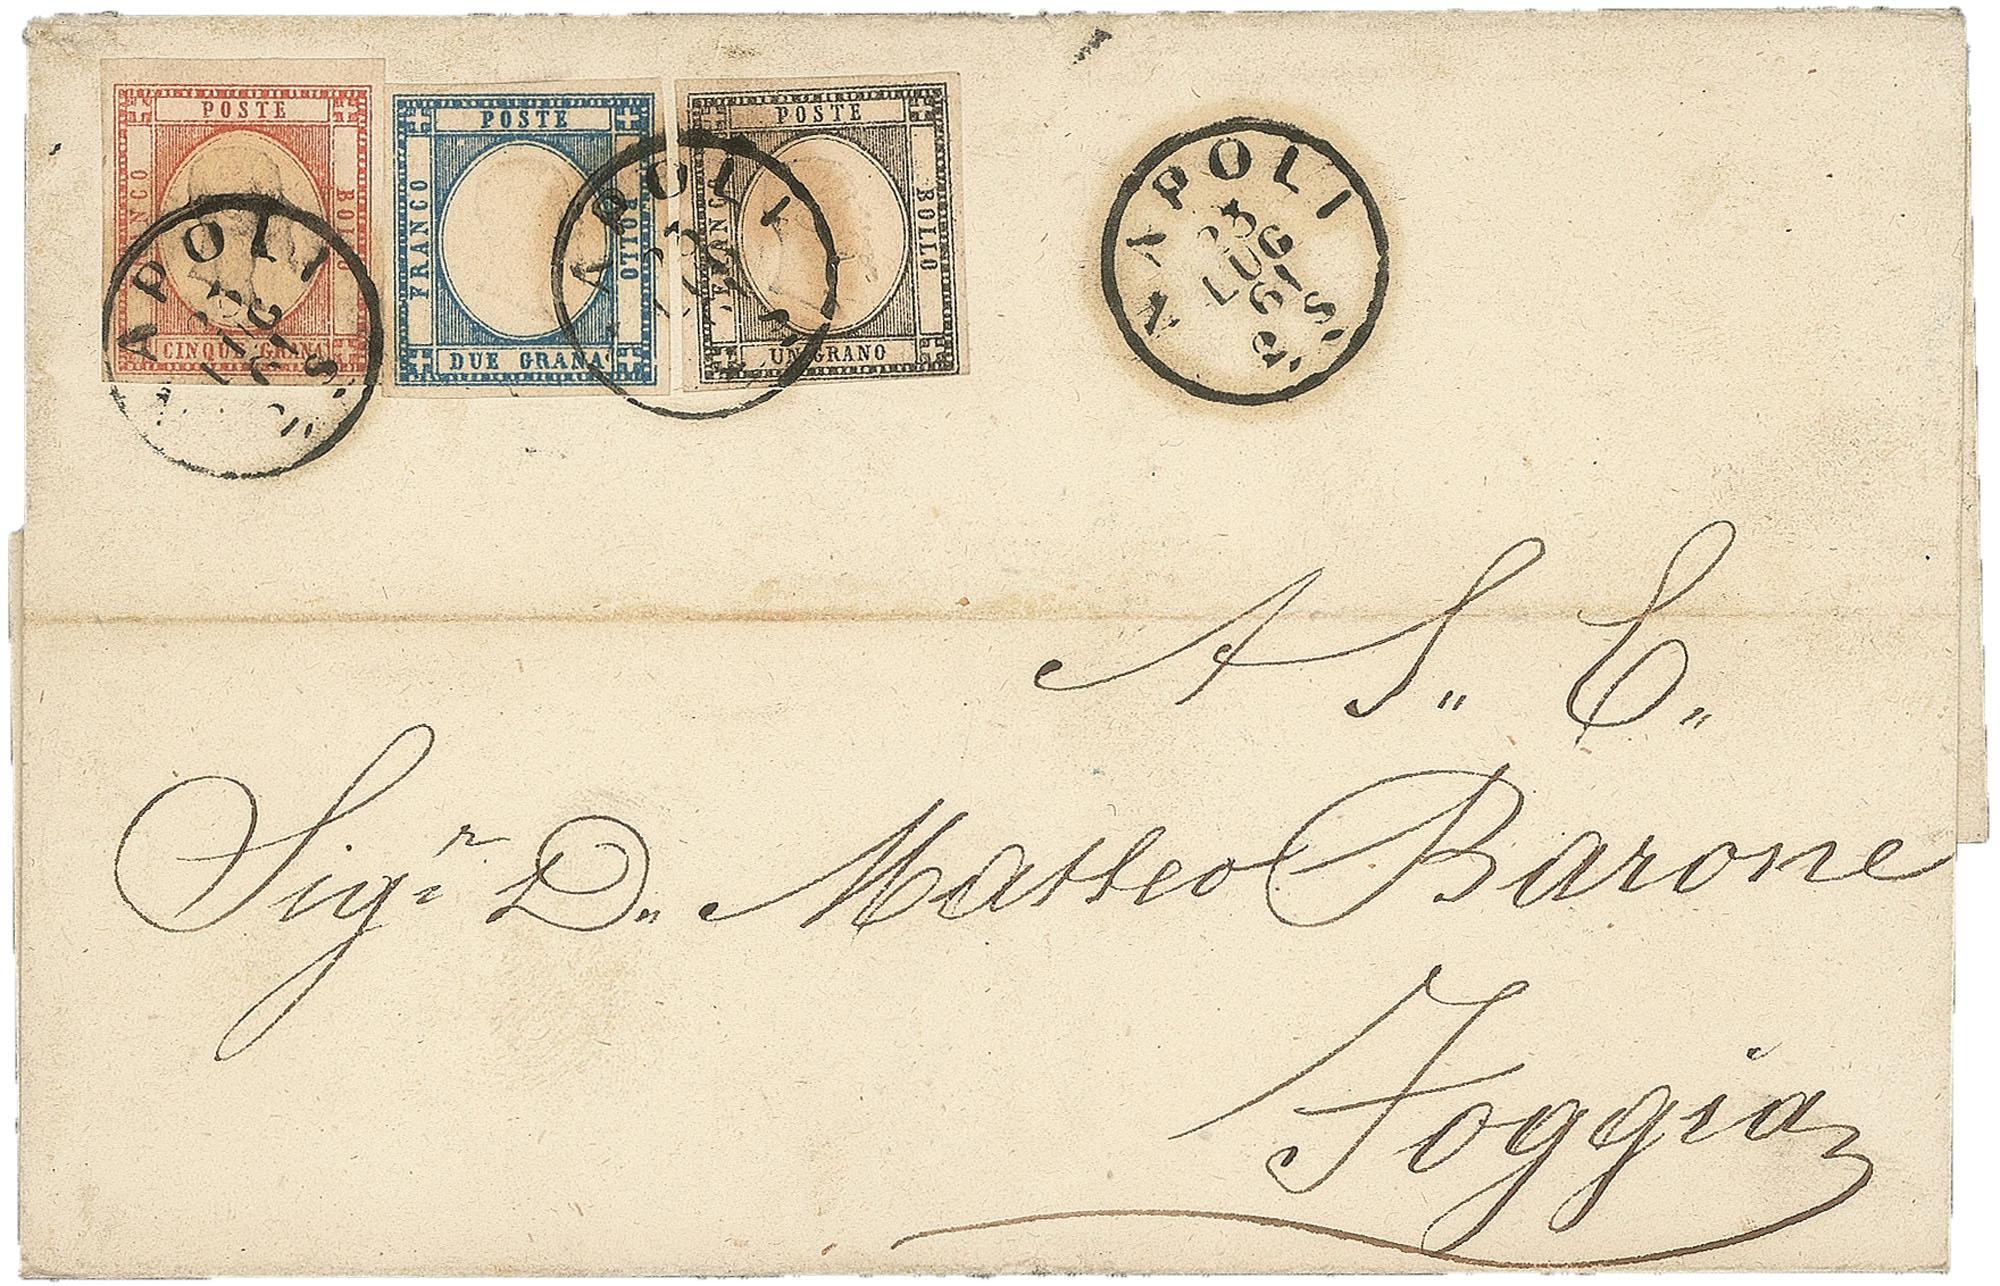 POSTE
FRANCO
BOLLO
CINQUE GRANA
POSTE
FRANCO
BOLLO
DUE GRANA
POSTE
FRANCO
BOLLO
UN GRANO
NAPOLI
LUG
61
APOLI
NAPOLI
23
LUG
61
A S. E.
Sigr. D. Matteo Barone
Foggia